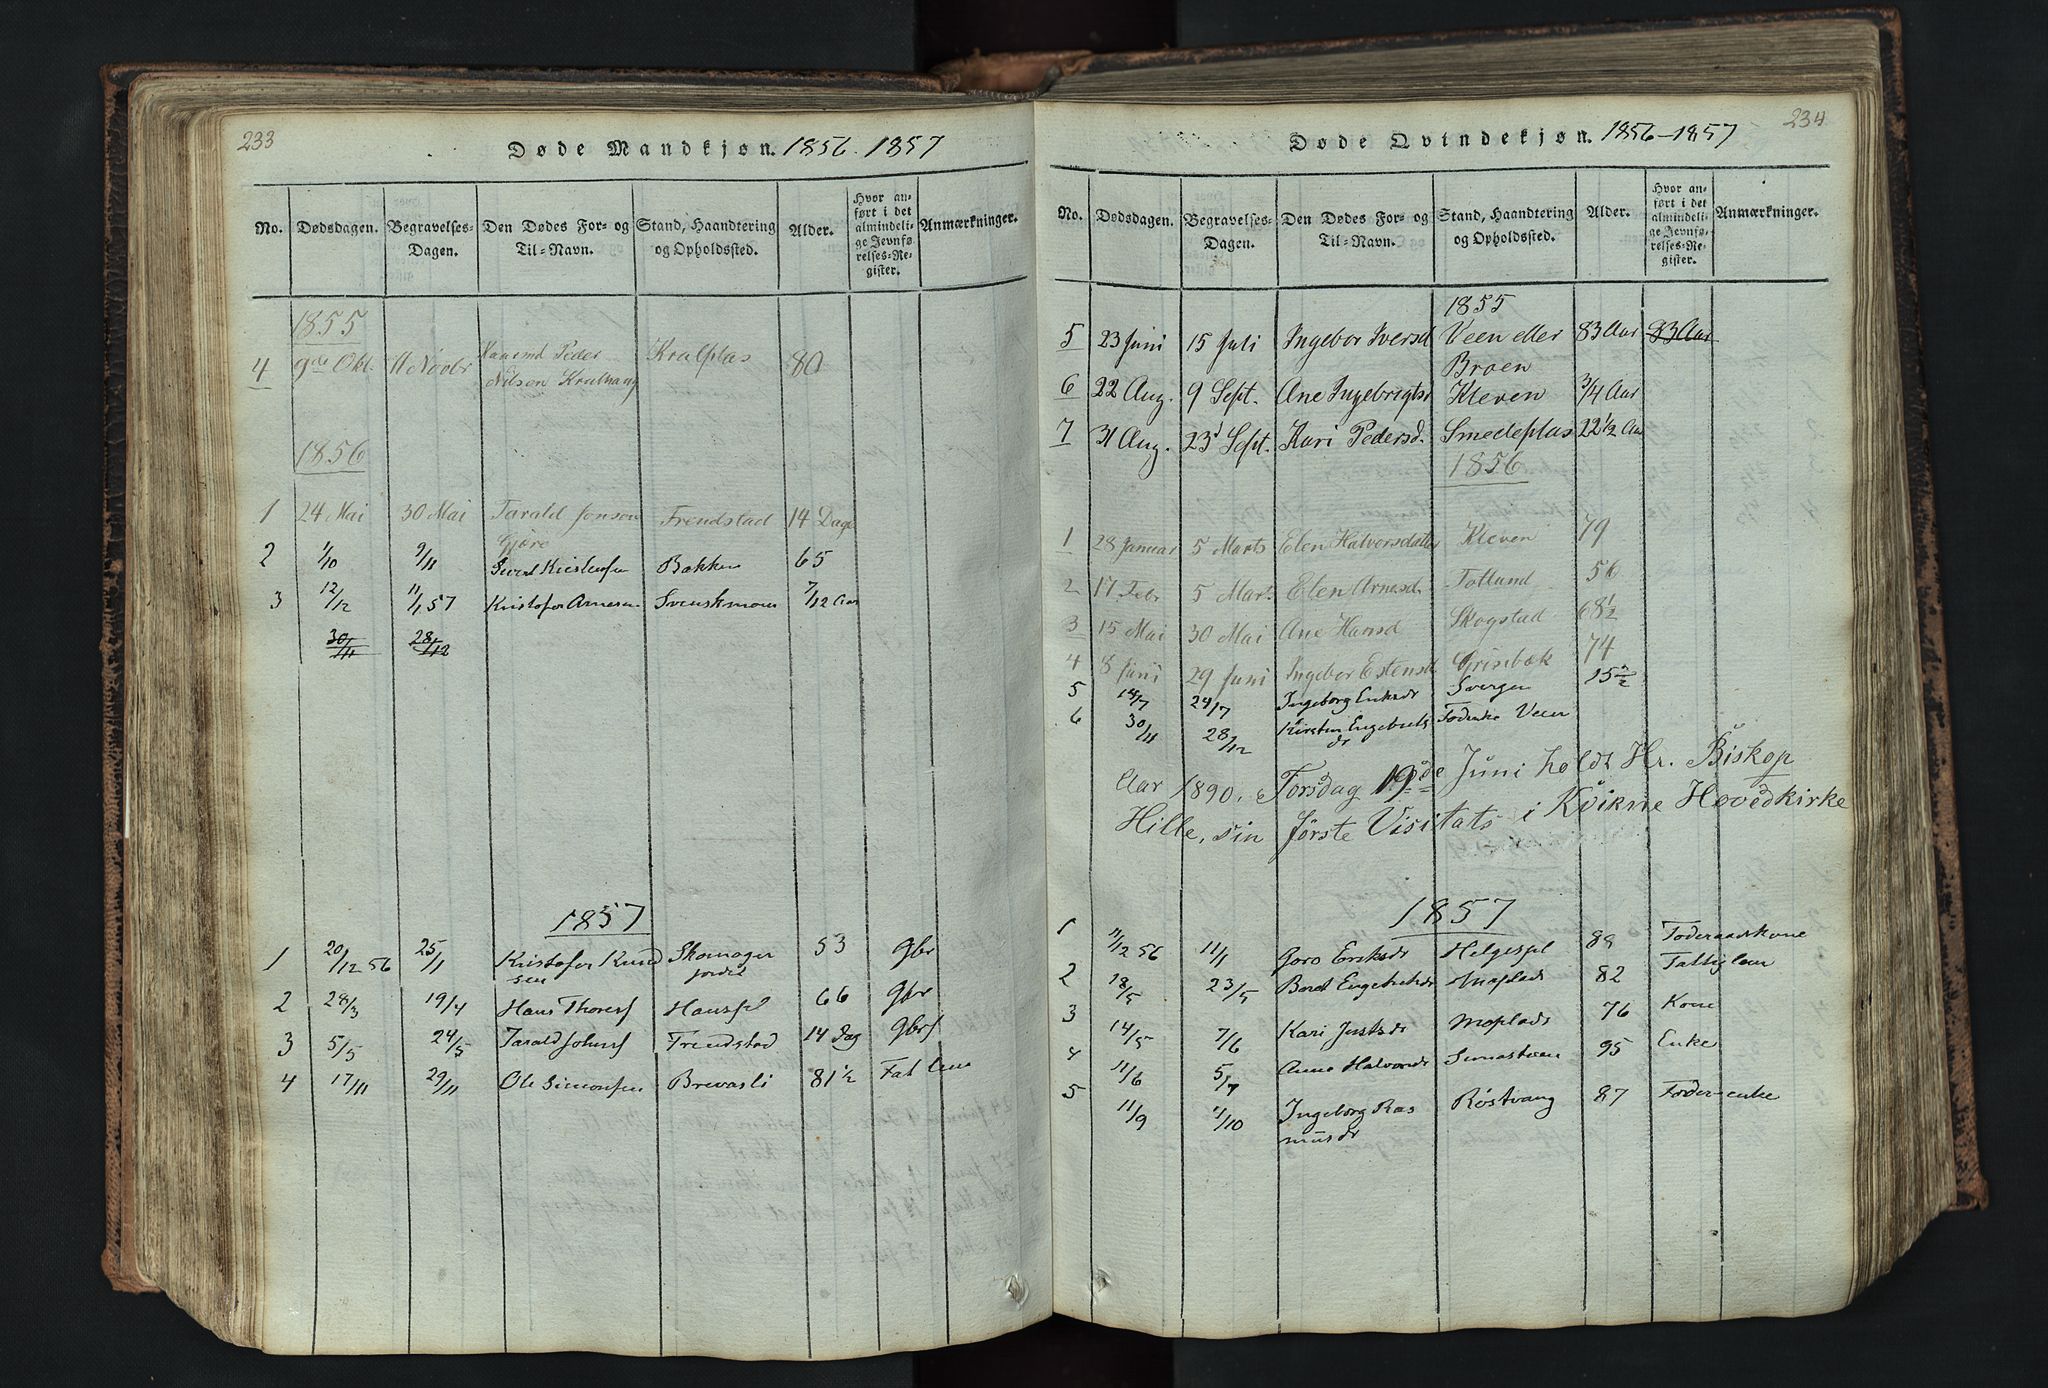 233
Døde Mandkjøn. 1856. 1857
No. Dødsdagen. Begravelses-Dagen. Den Dødes For- og Til-Navn. Stand, Haandtering og Opholdssted. Alder. Hvor anført i det almindelige Jevnførelses-Register. Anmærkninger.
1855
4 9de Okt. 11 Novbr Peder Kralplas 80
Nilsen Kralhaug
1856
1 24 Mai 30 Mai Tarald Jonsen Frendstad 14 Dage
Gjøre
2 1/10 9/11 Sivert Kristensen Bakken 65
3 12/12 11/1 57 Kristofer Arnesen Svenskmoen 7/12 Aar
30/11 28/12
1857
1 20/12 56 25/1 Kristofer Knud Skomager 53 Gbr
sen jordet
2 28/3 19/4 Hans Thoress Hanspl 66 Gbr
3 5/5 24/5 Tarald Johnss Frendstad 14 Dag Gbrs
4 17/11 29/11 Ole Simonsen Brevasli 81 1/2 Fat lem
234
Døde Qvindekjøn. 1856-1857
No. Dødsdagen. Begravelses-Dagen. Den Dødes For- og Til-Navn. Stand, Haandtering og Opholdssted. Alder. Hvor anført i det almindelige Jevnførelses-Register. Anmærkninger.
1855
5 23 Juni 15 Juli Ingebor Iversd Veen eller 83 Aar 83 Aar
Broen
6 22 Aug. 9 Sept. Ane Ingebrigtsd Kleven 3/4 Aar
7 31 Aug. 23d Sept. Kari Pedersd. Smedeplas 22 1/2 Aar
1856
1 28 Januar 5 Marts Elen Halvorsdatter Kleven 79
2 17 Febr 5 Marts Elen Arnesd Totland 56
3 15 Mai 30 Mai Ane Hansd Skogstad 68 1/2
4 8 Juni 29 Juni Ingebor Estensd Grisbæk 74
5 14/7 24/7 Ingeborg Eriksdr Svergen 15 1/2
6 30/11 28/12 Kirsten Engebrets Foderke Veen
dr
Aar 1890. Torsdag 19de Juni holdt Hr. Biskop
Hille, sin første Visitats i Kvikne Hovedkirke
1857
1 11/12 56 11/1 Goro Eriksdr Helgespl 89 Foderaadskone
2 18/5 23/5 Beret Engebretsdr Moplads 82 Fattiglem
3 14/5 7/6 Kari Justsdr Moplads 76 Kone
4 11/6 5/7 Anne Halvorsdr 95 Enke
5 11/9 4/10 Ingeborg Ras Røstvang 87 Foder-enke
musdr